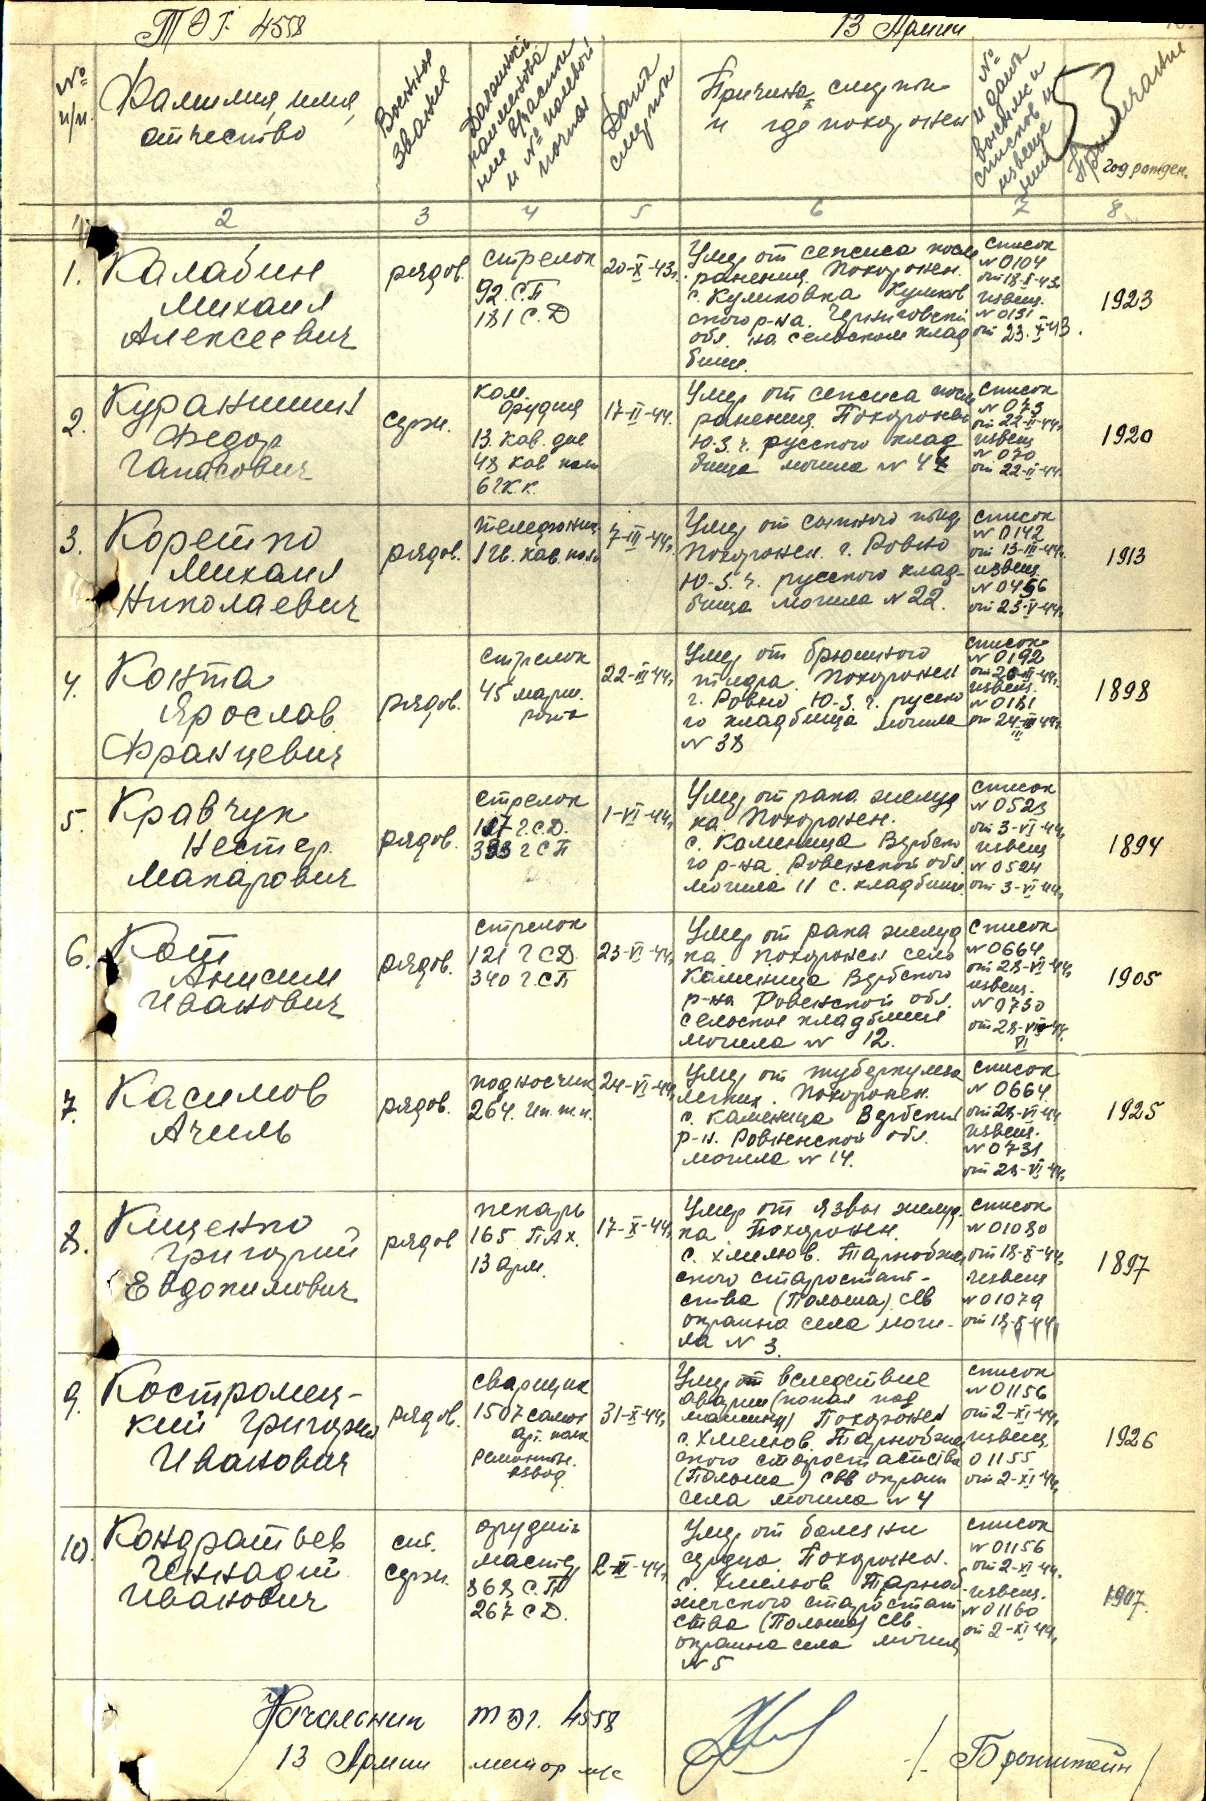 ТЭГ. 4558
13 Армии
53
№ п/п.
Фамилия, имя, отчество
Военное звание
Должность наименование части и № полевой почты
Дата смерти
Причина смерти
и где похоронен
№ и дата высылки списков и извещения
Примечание
Год рожден.
1 2 3 4 5 6 7 8
1.
Калабин
Михаил
Алексеевич
рядов.
стрелок
92. С.П
181 С.Д
20-X-43г.
Умер от сепсиса после
ранения. Похоронен.
с. Куликовка Куликов
ского р-на. Черниговской
обл. на сельском клад
бище.
список
№ 0104
от 18-X-43
извещ.
№ 0131
от 23.X-43.
1923
2.
Федор
серж.
ком.
орудия
13. кав. див
48 кав полк
6 гк.к.
17-II-44г.
Умер от сепсиса после
ранения. Похоронен
Ю.З.ч. русского клад
бища могила № 4
список
№ 073
от 22-II-44г.
извещ
№ 070
от 22-II-44г.
1920
3.
Коретко
Михаил
Николаевич
рядов.
телефонист
1 гв. кав. полк
7-III-44г.
Умер от сыпного тифа
Похоронен. г. Ровно
Ю-З.ч. русского клад-
бища могила № 22.
список
№ 0142
от 13-III-44г.
извещ.
№ 0456
от 23-V-44г.
1913
4.
Конта
Ярослав
Францевич
рядов.
стрелок
45 марш.
рота
22-III-44г.
Умер от брюшного
тифа. Похоронен
г. Ровно Ю-З.ч. русско
го кладбища могила
№ 38
список
№ 0192
извещ.
№ 0181
от 24-III-44г.
III
1898
5.
Кравчук
Нестер
Макарович
рядов.
стрелок
117 г С.Д.
333 г С П
1-VI-44г.
Умер от рака желуд
ка. Похоронен.
с. Каменица Вербско
го р-на. Ровенской обл.
могила 11 с. кладбище.
список
№ 0523
от 3-VI-44г.
извещ
№ 0524
от 3-VI-44г.
1894
6.
Кот
Анисим
Иванович
рядов.
стрелок
121 г СД
340 г.СП
23-VI-44г.
Умер от рака желуд
ка. Похоронен село
Каменица Вербского
р-на Ровенской обл.
сельское кладбище
могила № 12.
список
№ 0664
от 28-VI-44г.
извещ.
№ 0730
VI
1905
7.
Касимов
Ачиль
рядов.
подносчик
264. ип. т.п.
24-VI-44г.
Умер от туберкулеза
легких. Похоронен.
с. Каменица Вербский
р-н. Ровненской обл.
могила № 14.
список
№ 0664
от 28-VI-44
извещ.
№ 0731
от 28-VI-44г.
1925
8.
Кищенко
Григорий
Евдокимович
рядов
пекарь
165 ПАХ.
13 арм.
17-X-44г.
Умер от язвы желуд
ка Похоронен.
с. Хмелюв. Тарнобже
ского старостат-
ства (Польша) СВ
окраина села моги-
ла № 3.
список
№ 01080
от 18-X-44г.
извещ
№ 01079
от 18-X-44г.
1897
9.
Костромец-
кий Григорий
Иванович
рядов.
сварщик
1507 самох
арт. полк
ремонтн.
взвод.
31-X-44г.
Умер от вследствие
аварии (попал под
машину) Похоронен
с. Хмелюв. Тарнобже
ского старостатства
(Польша) СВВ окраи
села могила № 4
список
№ 01156
от 2-XI-44г.
извещ.
01155
от 2-XI-44г.
1926
10.
Кондратьев
Геннадий
Иванович
ст.
серж.
орудийн
мастер
868 С.П
267 С Д.
2-XI-44г.
Умер от болезни
сердца. Похоронен.
с. Хмелюв Тарноб
жекского старостат
ства (Польша) СВ.
окраина села могила
№ 5
список
№ 01156
от 2-XI-44г.
извещ.
№ 01160
от 2-XI-44г.
1907.
Начальник ТЭГ. 4558
13 Армии майор м/с
/ Бронштейн /